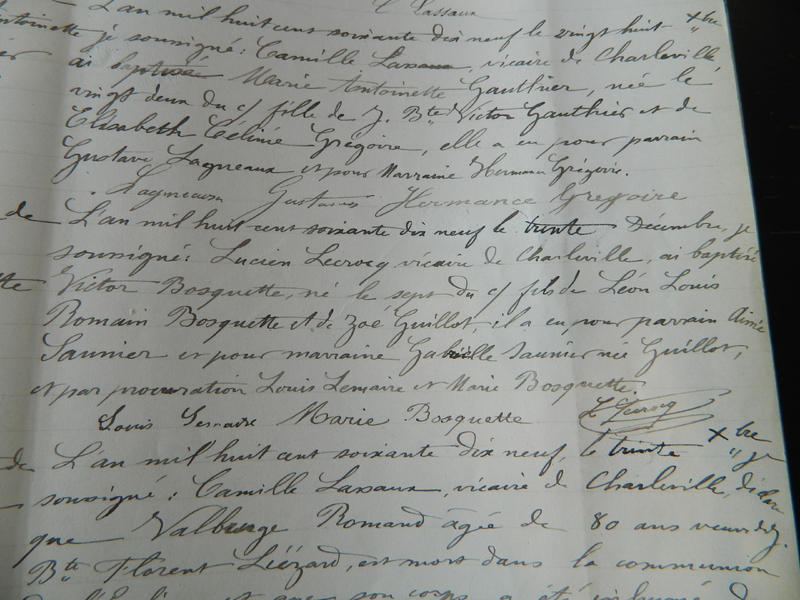 C Lassaux
L'an mil huit cent soixante dix neuf le vingt huit Xbre
Antoinette je soussigné : Camille Lassaux, vicaire de Charleville,
ai baptisé Marie Antoinette Gauthier, née le
vingt deux du c/ fille de J. Bte Victor Gauthier et de
Elisabeth Céline Grégoire, elle a eu pour parrain
Gustave Lagneaux et pour Marraine Hermance Grégoire.
Lagneaux Gustave Hermance Gregoire
de L'an mil huit cent soixante dix neuf le trente Décembre, je
soussigné : Lucien Lecrocq vicaire de Charleville, ai baptisé
Victor Bosquette, né le sept du c/ fils de Léon Louis
Romain Bosquette et de Zoé Guillot, il a eu pour parrain Aimé
Saunier et pour marraine Gabrielle Saunier née Guillot,
et par procuration Louis Lemaire et Marie Bosquette
Louis Lemaire Marie Bosquette L Lecrocq
de L'an mil huit cent soixante dix neuf, le trente Xbre
soussigné : Camille Lassaux, vicaire de Charleville, déclare
que Valburge Romand âgée de 80 ans veuve de J.
Bte Florent Léézard, est mort dans la communion
de l'Eglise et que son corps a été inhumé